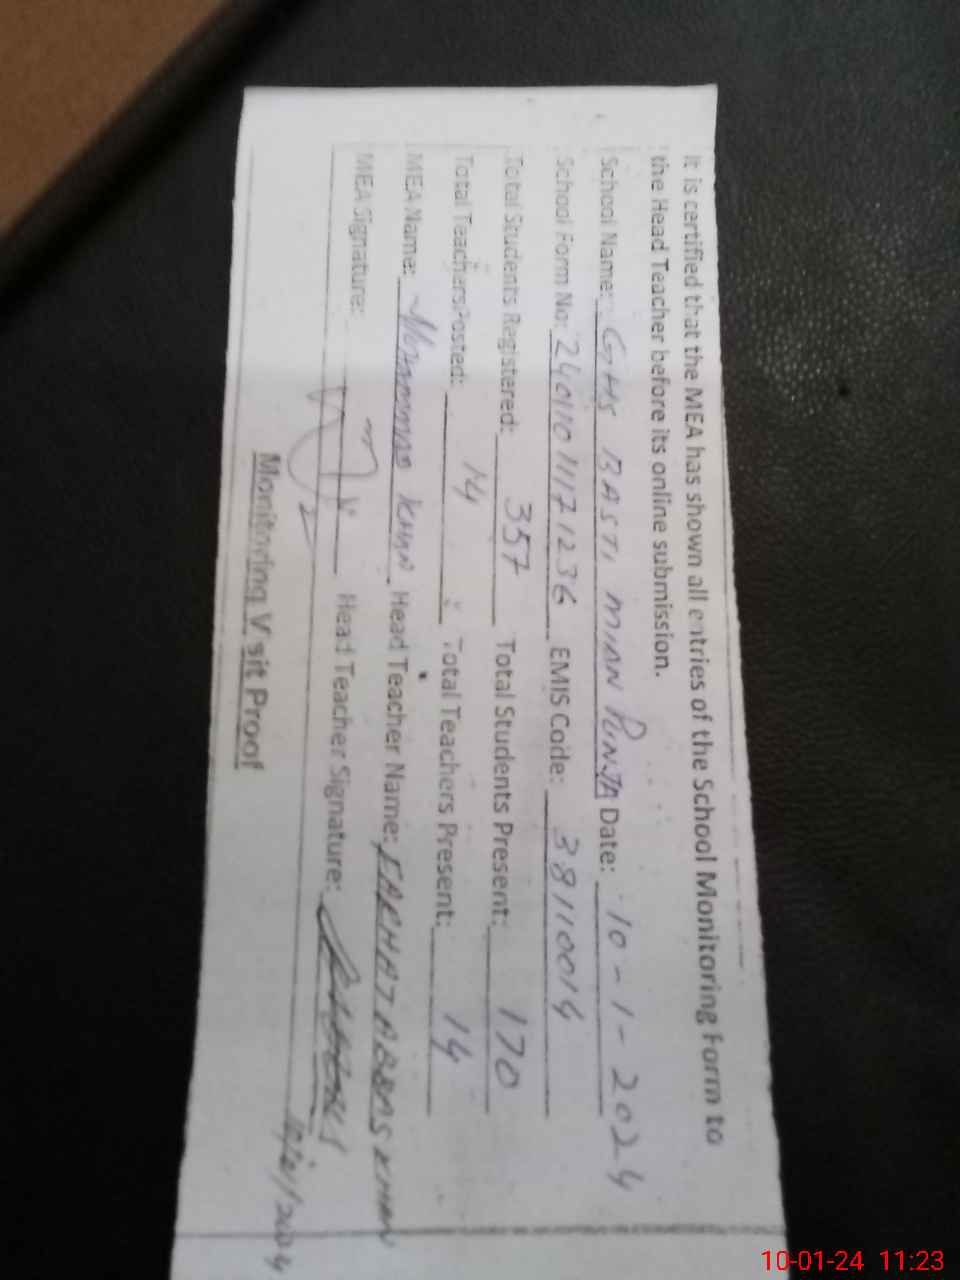 It is certified that the MEA has shown all entries of the School Monitoring Form to
the Head Teacher before its online submission.
School Name: GHS BASTI MIAN PUNJA Date: 10-1-2024
School Form No: 24011011171236 EMIS Code: 38110014
Total Students Registered: 357 Total Students Present: 170
Total Teachers Posted: 14 Total Teachers Present: 14
MEA Name: KHAN Head Teacher Name: FARHAT ABBAS KHAN
MEA Signature: Head Teacher Signature:
10/01/2024
Monitoring Visit Proof
10-01-24 11:23